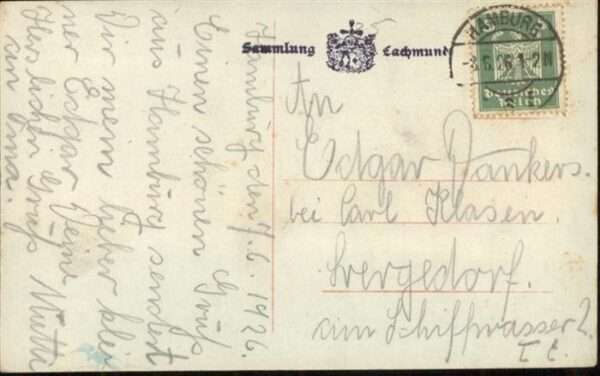 Hamburg den 7.6.1926.
Einen schönen Gruß
aus Hamburg sendert
Dir mein lieber klei
ner Edgar Deine
Mutti
Herslichen Gruß
an Oma.
Sammlung Lachmund
HAMBURG
.6.26.1-2N
Deutsches
Reich
An
Edgar Dankers.
bei Carl Klasen.
Bergedorf.
am Schiffwasser 2.